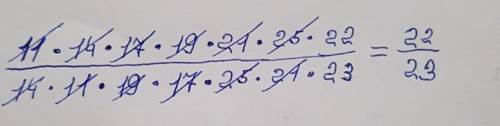 11 · 14 · 17 · 19 · 21 · 25 · 22
14 · 11 · 19 · 17 · 25 · 21 · 23
= 22
23